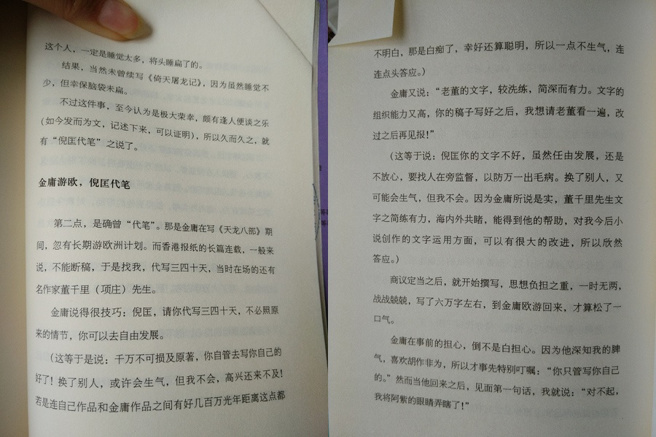 这个人，一定是睡觉太多，将头睡扁了的。
结果，当然未曾续写《倚天屠龙记》，因为虽然睡觉不
少，但幸保脑袋未扁。
不过这件事，至今认为是极大荣幸，颇有逢人便谈之乐
(如今发而为文，记述下来，可以证明)，所以久而久之，就
有“倪匡代笔”之说了。
金庸游欧，倪匡代笔
第二点，是确曾“代笔”。那是金庸在写《天龙八部》期
间，忽有长期游欧洲计划。而香港报纸的长篇连载，一般来
说，不能断稿，于是找我，代写三四十天，当时在场的还有
名作家董千里（项庄）先生。
金庸说得很技巧：倪匡，请你代写三四十天，不必照原
来的情节，你可以去自由发展。
（这等于是说：千万不可损及原著，你自管去写你自己的
好了！换了别人，或许会生气，但我不会，高兴还来不及！
若是连自己作品和金庸作品之间有好几百万光年距离这点都
不明白，那是白痴了，幸好还算聪明，所以一点不生气，连
连点头答应。）
金庸又说：“老董的文字，较洗练，简深而有力。文字的
组织能力又高，你的稿子写好之后，我想请老董看一遍，改
过之后再见报！”
（这等于说：倪匡你的文字不好，虽然任由发展，还是
不放心，要找人在旁监督，以防万一出毛病。换了别人，又
可能会生气，但我不会。因为金庸所说是实，董千里先生文
字之简练有力，海内外共睹，能得到他的帮助，对我今后小
说创作的文字运用方面，可以有很大的改进，所以欣然
答应。）
商议定当之后，就开始撰写，思想负担之重，一时无两，
战战兢兢，写了六万字左右，到金庸欧游回来，才算松了一
口气。
金庸在事前的担心，倒不是白担心。因为他深知我的脾
气，喜欢胡作非为，所以才事先特别叮嘱：“你只管写你自己
的。”然而当他回来之后，见面第一句话，我就说：“对不起，
我将阿紫的眼睛弄瞎了！”